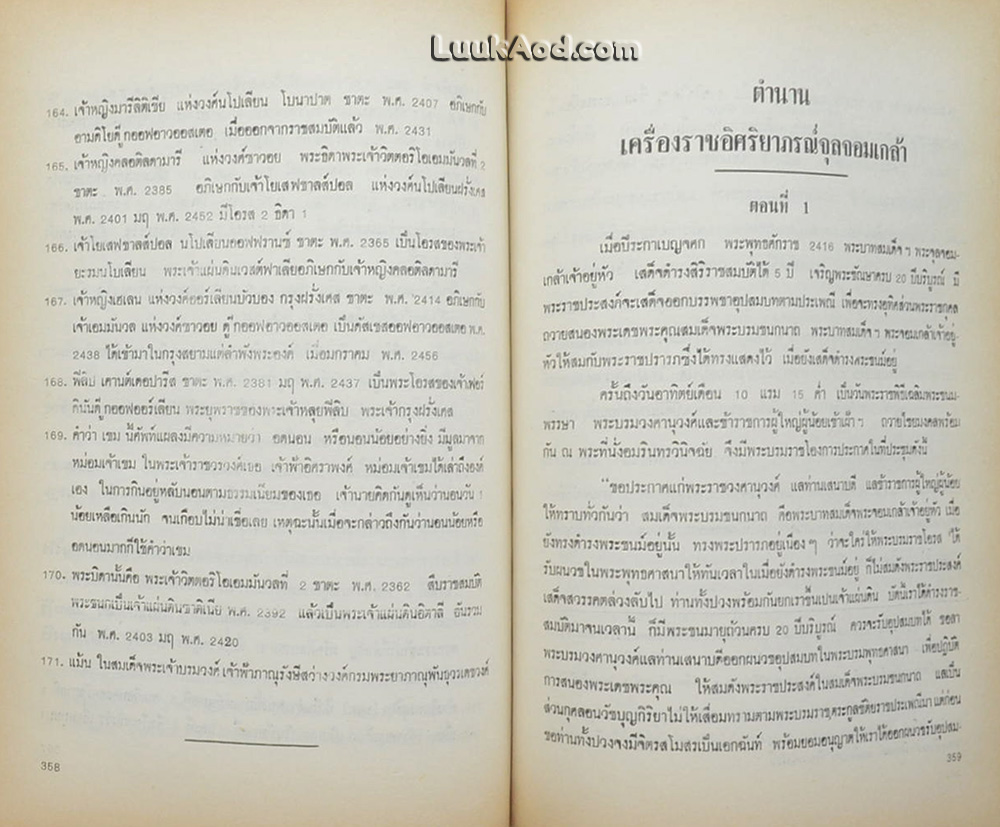 LuukAod.com
164. เจ้าหญิงมารีลิติเซีย แห่งวงค์นโปเลียน โบนาปาต ชาตะ พ.ศ. 2407 อภิเษกกับ
อามดิโยดู๊กออฟอาวออสเตอ เมื่อออกจากราชสมบัติแล้ว พ.ศ. 2431
165. เจ้าหญิงคลอติลดามารี แห่งวงค์ซาวอย พระธิดาพระเจ้าวิตตอริโอเอมมันวลที่ 2
ชาตะ พ.ศ. 2385 อภิเษกกับเจ้าโยเสฟชาลส์ปอล แห่งวงค์นโปเลียนฝรั่งเศส
พ.ศ. 2401 มฤ พ.ศ. 2452 มีโอรส 2 ธิดา 1
166. เจ้าโยเสฟชาลส์ปอล นโปเลียนออฟฟรานซ์ ชาตะ พ.ศ. 2365 เป็นโอรสของพระเจ้า
ยะรมนโบเลียน พระเจ้าแผ่นดินเวสต์ฟาเลียอภิเษกกับเจ้าหญิงคลอติลดามารี
167. เจ้าหญิงเฮเลน แห่งวงค์ออร์เลียนบัวบอง กรุงฝรั่งเศส ชาตะ พ.ศ. 2414 อภิเษกกับ
เจ้าเอมมันวล แห่งวงค์ซาวอย ดู๊กออฟอาวออสเตอ เป็นดัสเชสออฟอาวออสเตอ พ.ศ.
2438 ได้เข้ามาในกรุงสยามแต่ลำพังพระองค์ เมื่อมกราคม พ.ศ. 2456
168. ฟิลิป เคานต์เดอปารีส ชาตะ พ.ศ. 2381 มฤ พ.ศ. 2437 เป็นพระโอรสของเจ้าเฟอร์
ดินันดู๊กออฟออร์เลียน พระยุพราชของพระเจ้าหลุยฟิลิบ พระเจ้ากรุงฝรั่งเศส
169. คำว่า เขม นี้ศัพท์แผลงมีความหมายว่า อดนอน หรือนอนน้อยอย่างยิ่ง มีมูลมาจาก
หม่อมเจ้าเขม ในพระเจ้าราชวรวงค์เธอ เจ้าฟ้าอิศราพงค์ หม่อมเจ้าเขมได้เล่าถึงองค์
เอง ในการกินอยู่หลับนอนตามธรรมเนียมของเธอ เจ้านายคิดกันดูเห็นว่านอนวัน 1
น้อยเหลือเกินนัก จนเกือบไม่น่าเชื่อเลย เหตุฉะนั้นเมื่อจะกล่าวถึงกันว่านอนน้อยหรือ
อดนอนมากก็ใช้คำว่าเขม
170. พระบิดานั้นคือ พระเจ้าวิตตอริโอเอมมันวลที่ 2 ชาตะ พ.ศ. 2362 สืบราชสมบัติ
พระชนกเป็นเจ้าแผ่นดินซาดิเนีย พ.ศ. 2392 แล้วเป็นพระเจ้าแผ่นดินอิตาลี อันรวม
กัน พ.ศ. 2403 มฤ พ.ศ. 2420
171. แม้น ในสมเด็จพระเจ้าบรมวงค์ เจ้าฟ้าภาณุรังษีสว่างวงค์กรมพระยาภาณุพันธุวรเดชวงค์
358
ตำนาน
เครื่องราชอิศริยาภรณ์จุลจอมเกล้า
ตอนที่ 1
เมื่อปีระกาเบญจศก พระพุทธศักราช 2416 พระบาทสมเด็จ ฯ พระจุลจอม-
เกล้าเจ้าอยู่หัว เสด็จดำรงสิริราชสมบัติได้ 5 ปี เจริญพระชัณษาครบ 20 ปีบริบูรณ์ มี
พระราชประสงค์จะเสด็จออกบรรพชาอุปสมบทตามประเพณี เพื่อจะทรงอุทิศส่วนพระราชกุศล
ถวายสนองพระเดชพระคุณสมเด็จพระบรมชนกนาถ พระบาทสมเด็จ ฯ พระจอมเกล้าเจ้าอยู่-
หัวให้สมกับพระราชปรารภซึ่งได้ทรงแสดงไว้ เมื่อยังเสด็จดำรงคระชนม์อยู่
ครั้นถึงวันอาทิตย์เดือน 10 แรม 15 ค่ำ เป็นวันพระราชพิธีเฉลิมพระชนม-
พรรษา พระบรมวงศานุวงค์และข้าราชการผู้ใหญ่ผู้น้อยเข้าเฝ้า ฯ ถวายไชยมงคลพร้อม
กัน ณ พระที่นั่งอมรินทรวินิจฉัย จึงมีพระบรมราชโองการประกาศในที่ประชุมดังนี้
"ขอประกาศแก่พระราชวงศานุวงค์ แลท่านเสนาบดี แลข้าราชการผู้ใหญ่ผู้น้อย
ให้ทราบทั่วกันว่า สมเด็จพระบรมชนกนาถ คือพระบาทสมเด็จพระจอมเกล้าเจ้าอยู่หัว เมื่อ
ยังทรงดำรงพระชนม์อยู่นั้น ทรงพระปรารภอยู่เนือง ๆ ว่าจะใคร่ให้พระบรมราชโอรส ได้
รับผนวชในพระพุทธศาสนาให้ทันเวลาในเมื่อยังดำรงพระชนม์อยู่ ก็ไม่สมดังพระราชประสงค์
เสด็จสวรรคตล่วงลับไป ท่านทั้งปวงพร้อมกันยกเราขึ้นเปนเจ้าแผ่นดิน บัดนี้เราได้ดำรงราช-
สมบัติมาจนเวลานี้ ก็มีพระชนมายุถ้วนครบ 20 ปีบริบูรณ์ ควรจะรับอุปสมบทได้ ขอลา
พระบรมวงศานุวงค์แลท่านเสนาบดีออกผนวชอุปสมบทในพระบรมพุทธศาสนา เพื่อปฏิบัติ
การสนองพระเดชพระคุณ ให้สมดังพระราชประสงค์ในสมเด็จพระบรมชนกนาถ แลเป็น
ส่วนกุศลอนวัชบุญกิริยาไม่ให้เสื่อมทรามตามพระบรมราชตระกูลชติยราชประเพณีมาแต่ก่อน
ขอท่านทั้งปวงจงมีจิตรสโมสรเป็นเอกฉันท์ พร้อมยอมอนุญาตให้เราได้ออกผนวชรับอุปสม-
359